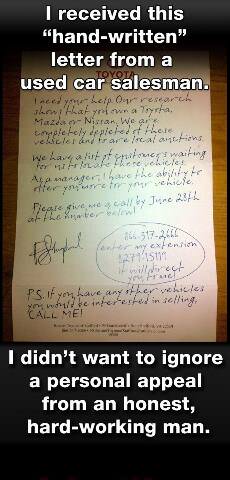 I received this
“hand-written”
letter from a
used car salesman.
TOYOTA
I need your help. Our research
shows that you own a Toyota,
Mazda or Nissan. We are
completely depleted of these
vehicles and so are local auctions.
We have a list of customers waiting
for us to locate these vehicles.
As a manager, I have the ability to
offer you more for your vehicle.
Please give me a call by June 28th
at the number below!
866-317-2666
enter my extension
it will direct
you to me!
P.S. If you have any other vehicles
you would be interested in selling,
CALL ME!
I didn’t want to ignore
a personal appeal
from an honest,
hard-working man.